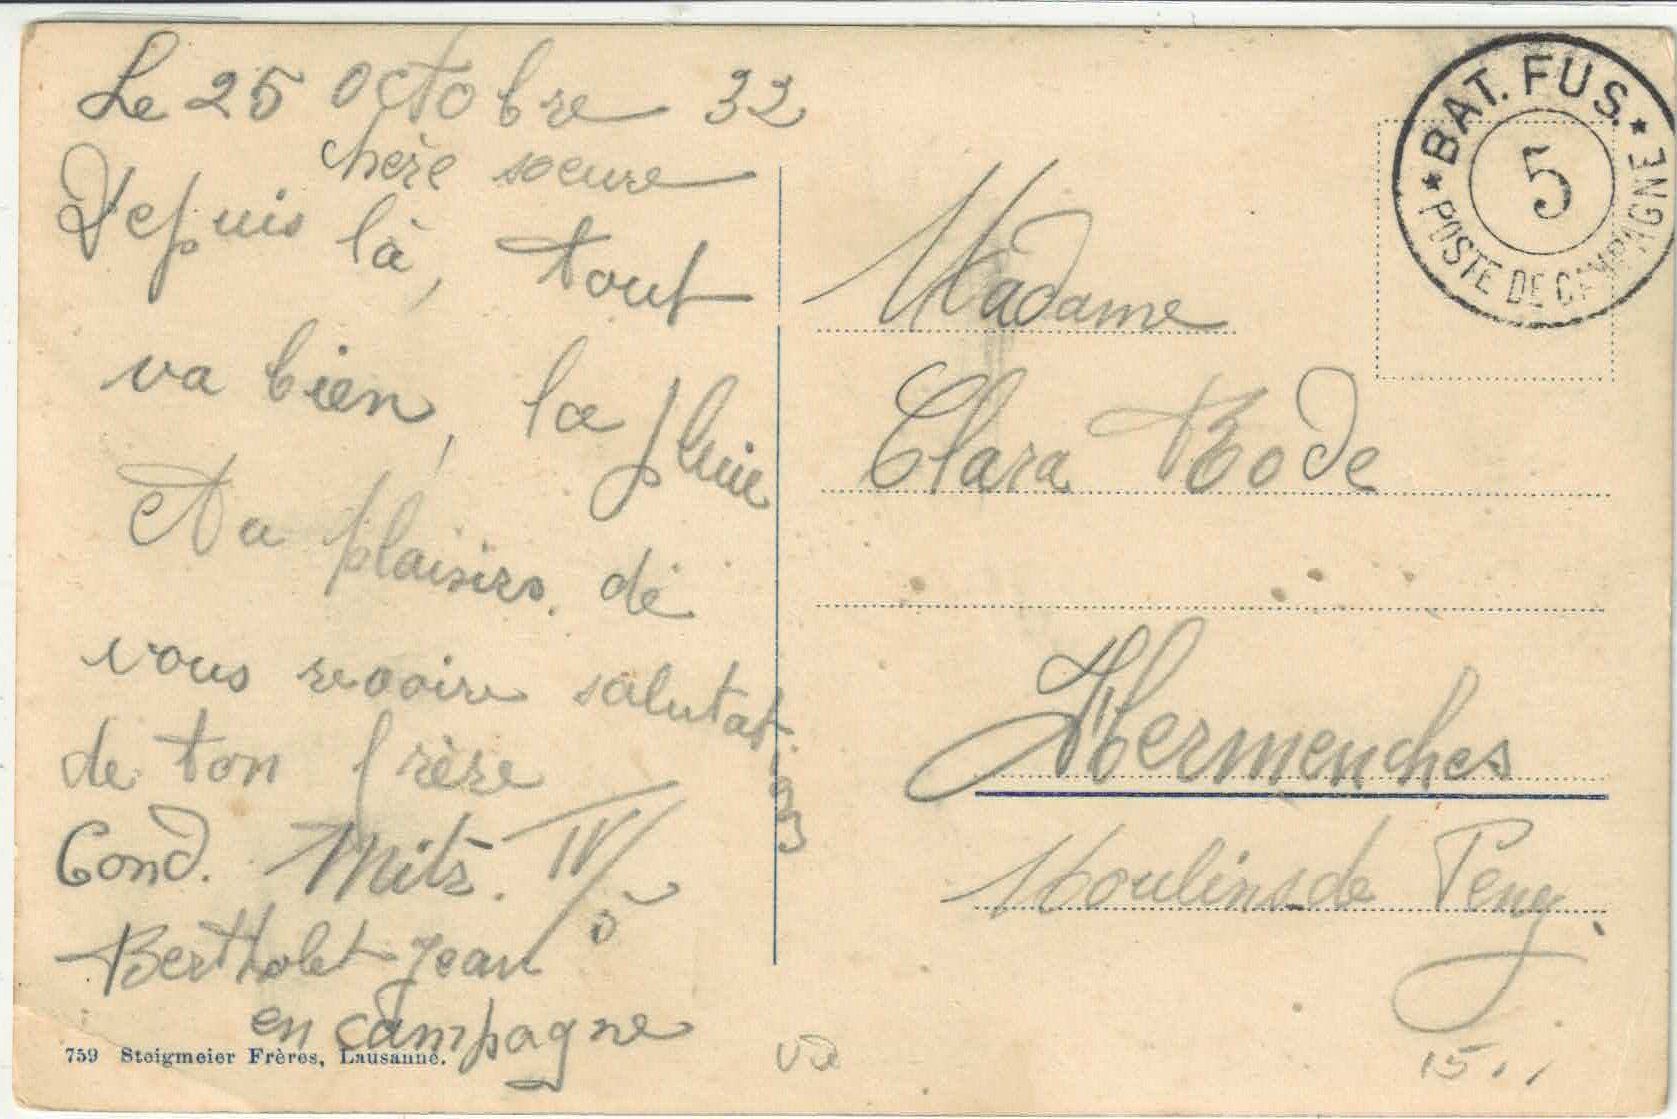 Le 25 Octobre 32
chère soeure
Depuis là, tout
va bien, la pluie
Au plaisirs. de
vous revoire salutat.
de ton frère
Cond. Mitr. IV/5
Bertholet Jean
en campagne
759 Steigmeier Frères, Lausanne.
★ BAT. FUS. ★
5
POSTE DE CAMPAGNE
Madame
Clara Bode
Hermenches
Moulins de Peney
va
15..